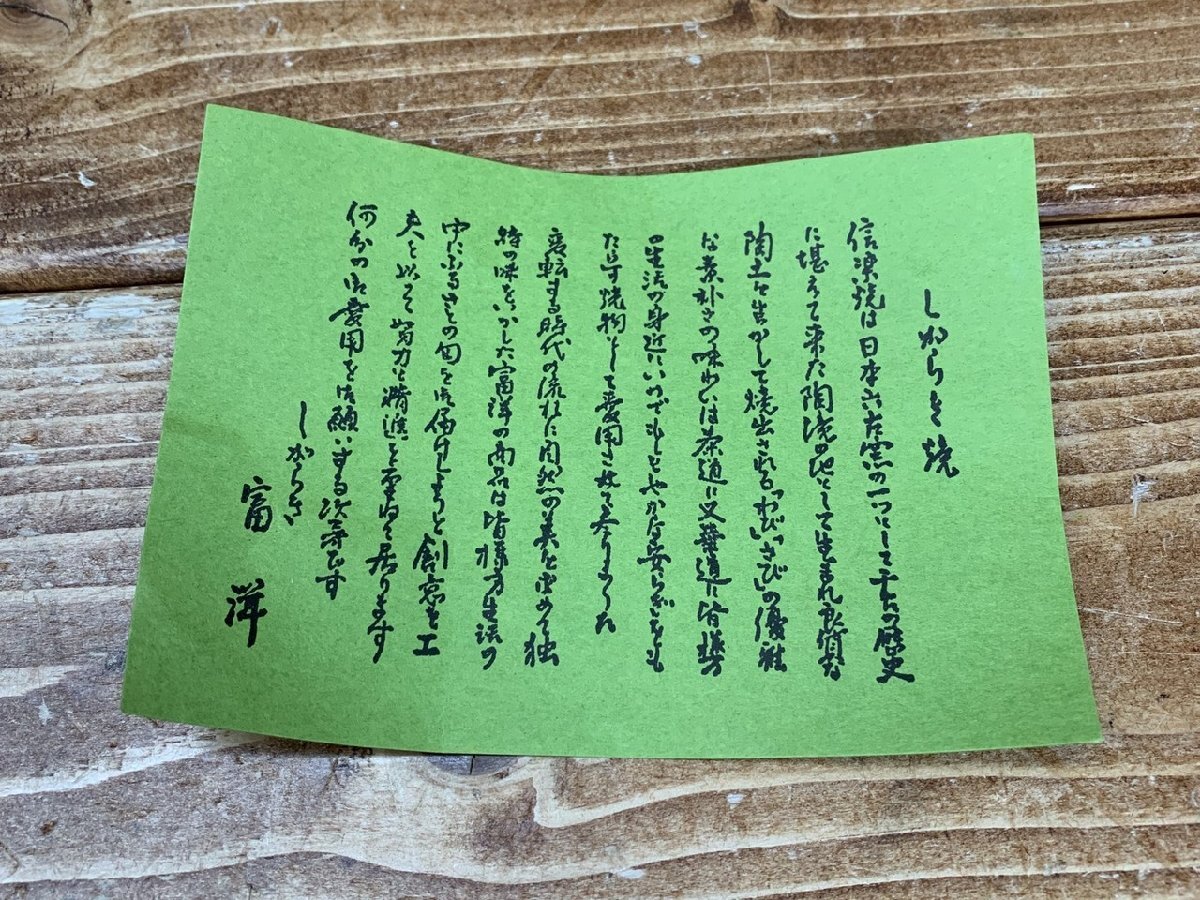 しがらき焼
信楽焼は日本六古窯の一つとして千古の歴史
に堪えて来た陶浅の地として生まれ良質な
陶土を生かして焼出される「わび」「さび」の優雅
な素朴さの味わいは茶道に又華道に皆様方
の生活の身近にいつでもしとやかな安らぎをも
たらす焼物として愛用されて参りました
変転する時代の流れに自然の美を求めて独
特の味をいかした富洋の商品は皆様方生活の
中にふるさとの匂をお届けしようと創意を工
夫と以って努力と精進を重ねて居ります
何分の御愛用をお願いする次第です
しがらき
富洋